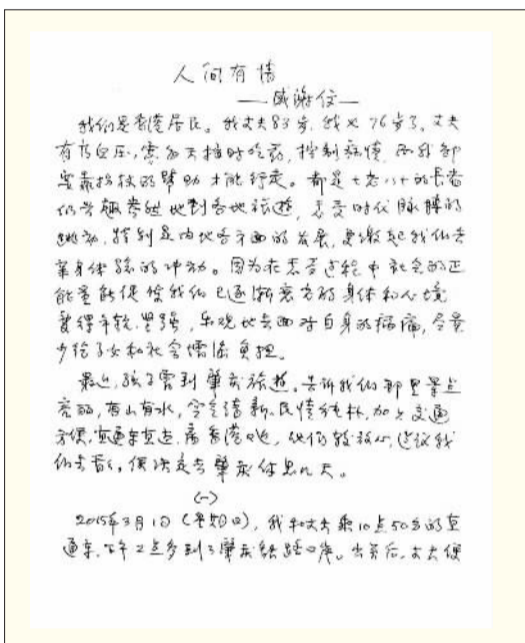 人间有情
——感谢信——
我们是香港居民。我丈夫83岁,我 76岁了。丈夫
有高血压,需每天按时吃药,控制病情,而我却
要靠拐杖的帮助才能行走。都是七老八十的长者
仍兴趣 地到各地旅游,感受时代脉搏的
跳动,特别是内地各方面的发展,更激起我们去
亲身体验的冲动。因为在感受过程中社会的正
能量能促使我们已逐渐衰老的身体和心境
变得年轻、坚强,乐观地去面对自身的病痛,尽量
少给子女和社会增添负担。
最近,孩子需到肇庆旅游。告诉我们那里景点
亮丽,有山有水,空气清新、民情纯朴,加上交通
方便,直通车直达,离香港 近,他们较放心,建议我
们去看看。便决定去肇庆休息几天。
(一)
2015年3月1日(星期日),我和丈夫乘10点50分的直
通车,下午2点多到了肇庆铁路口岸。出关后,丈夫便